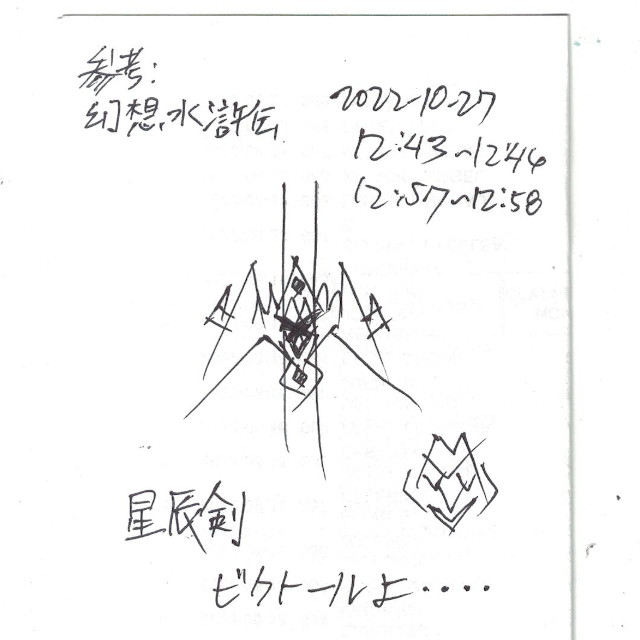 参考:
幻想水滸伝
2022-10-27
12:43~12:44
12:57~12:58
星辰剣
ビクトールよ‥‥